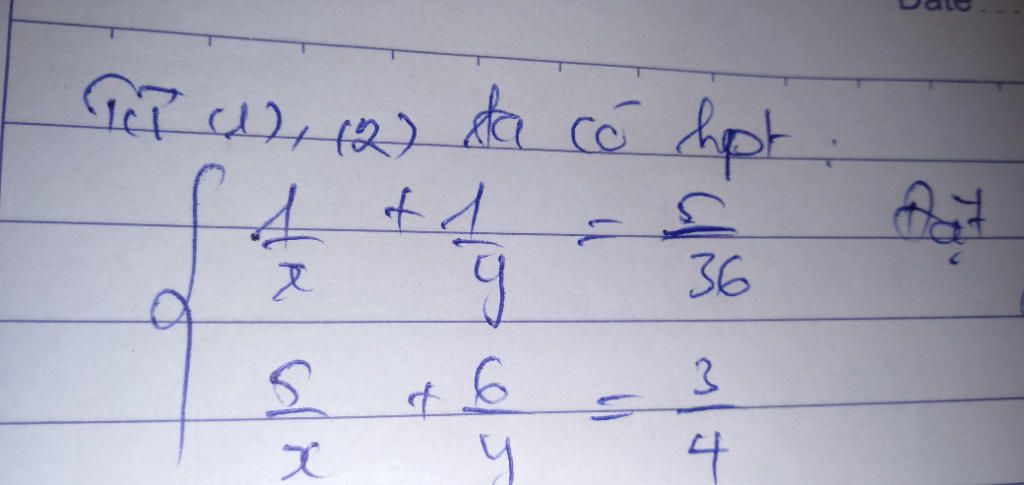 Date...
Từ (1), (2) ta có hpt:
1/x + 1/y = 5/36 Đặt
5/x + 6/y = 3/4